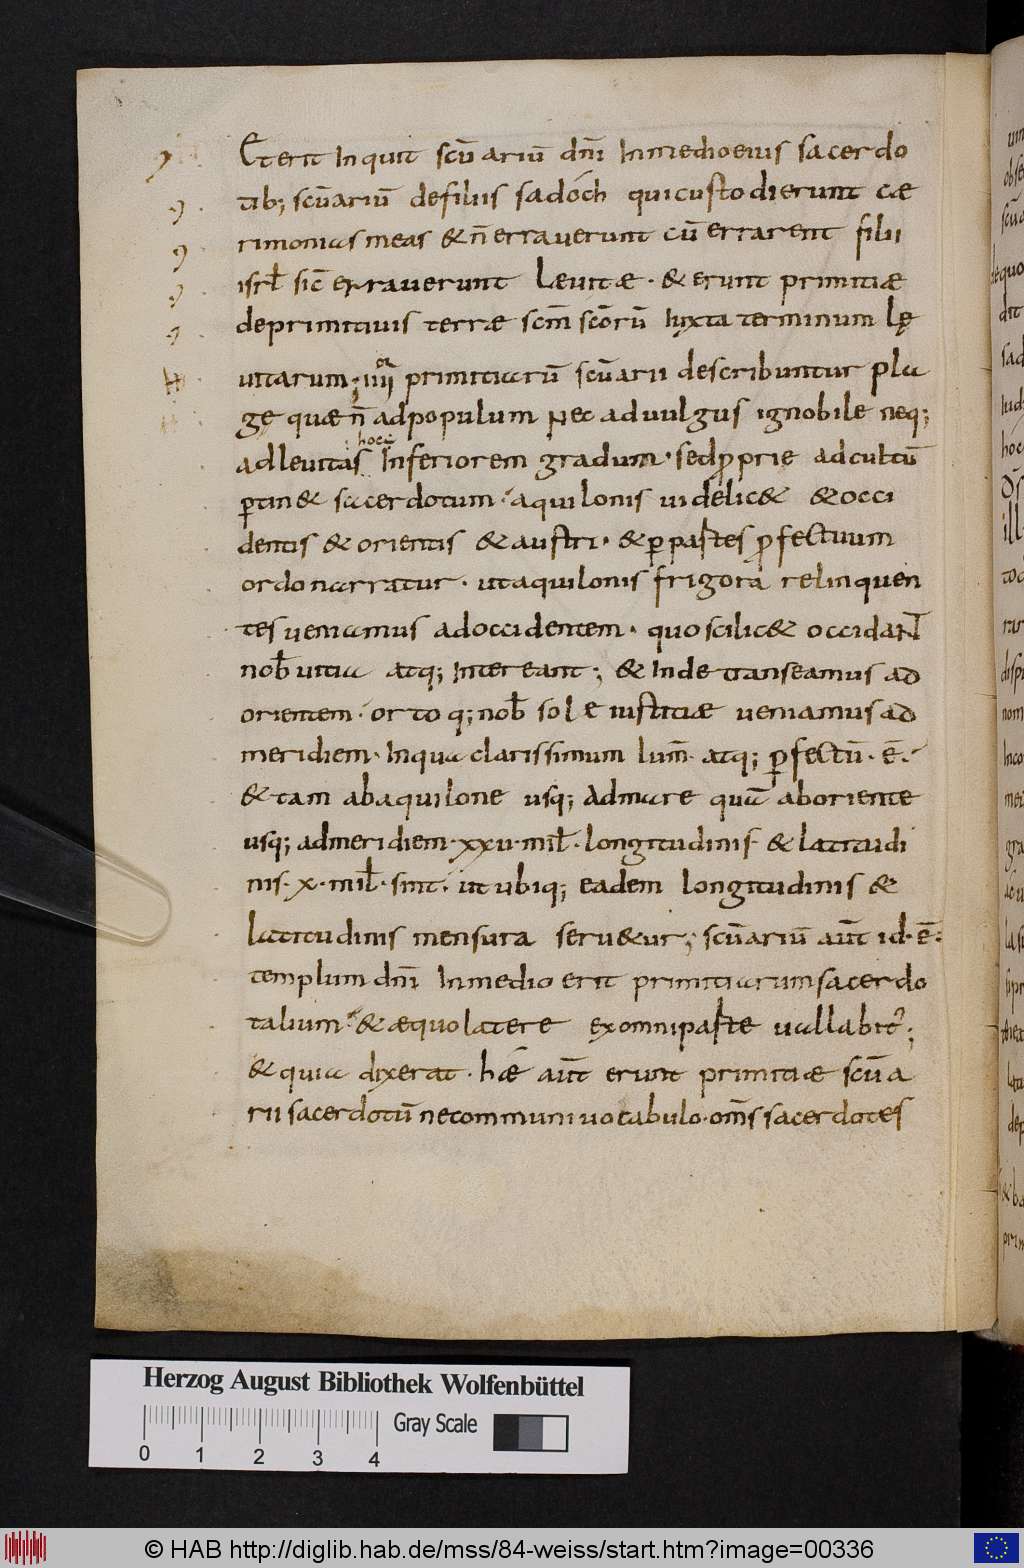 Et erit inquit scūariū dn̄i in medio eius sacerdo
tib; scūariū de filiis sadóch qui custodierunt cæ
rimonias meas & n̄ erraverunt cū errarent filii
isrł sic̄ erraverunt Lævitæ · & erunt primitiæ
de primitivis terræ scm̄ scōrū iuxta terminum lę
vitarum; iiii primitiarū scūarii describuntur pla
gę quæ n̄ ad populum nec ad vulgus ignobile neq;
ad levitas hoc ē inferiorem gradum · sed ꝓprie ad cultū
ꝑtin& sacerdotum · aquilonis videlic& & occi
dentis & orientis & austri · & ꝑ partes ꝓfectuum
ordo narratur · ut aquilonis frigora relinquen
tes veniamus ad occidentem · quo scilic& occidant
nob̄ vitia atq; intereant; & inde transeamus ad
orientem · orto q; nob̄ sole iustitiæ veniamus ad
meridiem · in qua clarissimum lum̄ · atq; ꝑfectū · ē ·
& tam ab aquilone usq; ad mare quā ab oriente
usq; ad meridiem · xxv · mił · longitudinis · & latitudi
nis · x · mił · sint · ut ubiq; eadem longitudinis &
latitudinis mensura serv&ur; scūariū aūt id · ē ·
templum dn̄i in medio erit primitiarum sacerdo
talium · & æquo latere ex omni parte vallabit᾿;
& quia dixerat · hæ aūt erunt primitiæ scūa
rii sacerdotū ne communi vocabulo · om̄s sacerdotes
Herzog August Bibliothek Wolfenbüttel
Gray Scale
0 1 2 3 4
© HAB http://diglib.hab.de/mss/84-weiss/start.htm?image=00336